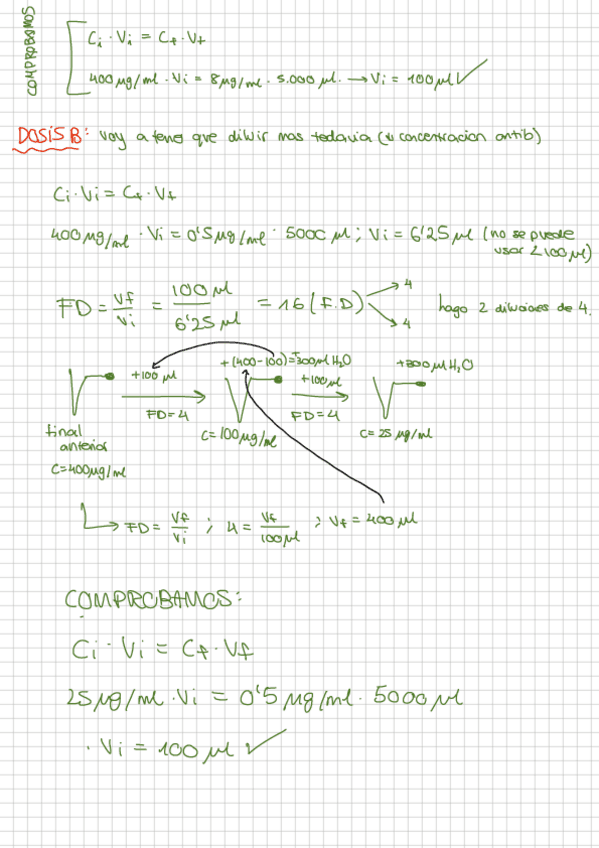 COMPROBAMOS
Ci · Vi = Cf · Vf
400 µg/ml · Vi = 8 µg/ml · 5.000 µl. → Vi = 100 µl ✓
DOSIS B: Voy a tener que diluir mas todavia (↓ concentracion antib)
Ci · Vi = Cf · Vf
400 µg/ml · Vi = 0'5 µg/ml · 5000 µl; Vi = 6'25 µl (no se puede
usar ∠100 µl)
FD = Vf/Vi = 100 µl/6'25 µl = 16 (F.D) → 4 → 4 hago 2 diluciones de 4.
+100 µl +(400-100)=300µl H2O +100µl +300µl H2O
FD=4 FD=4
final
anterior
C=400µg/ml C=100µg/ml C=25 µg/ml
FD = Vf/Vi ; 4 = Vf/100µl ; Vf = 400 µl
COMPROBAMOS:
Ci · Vi = Cf · Vf
25 µg/ml · Vi = 0'5 µg/ml · 5000 µl
· Vi = 100 µl ✓